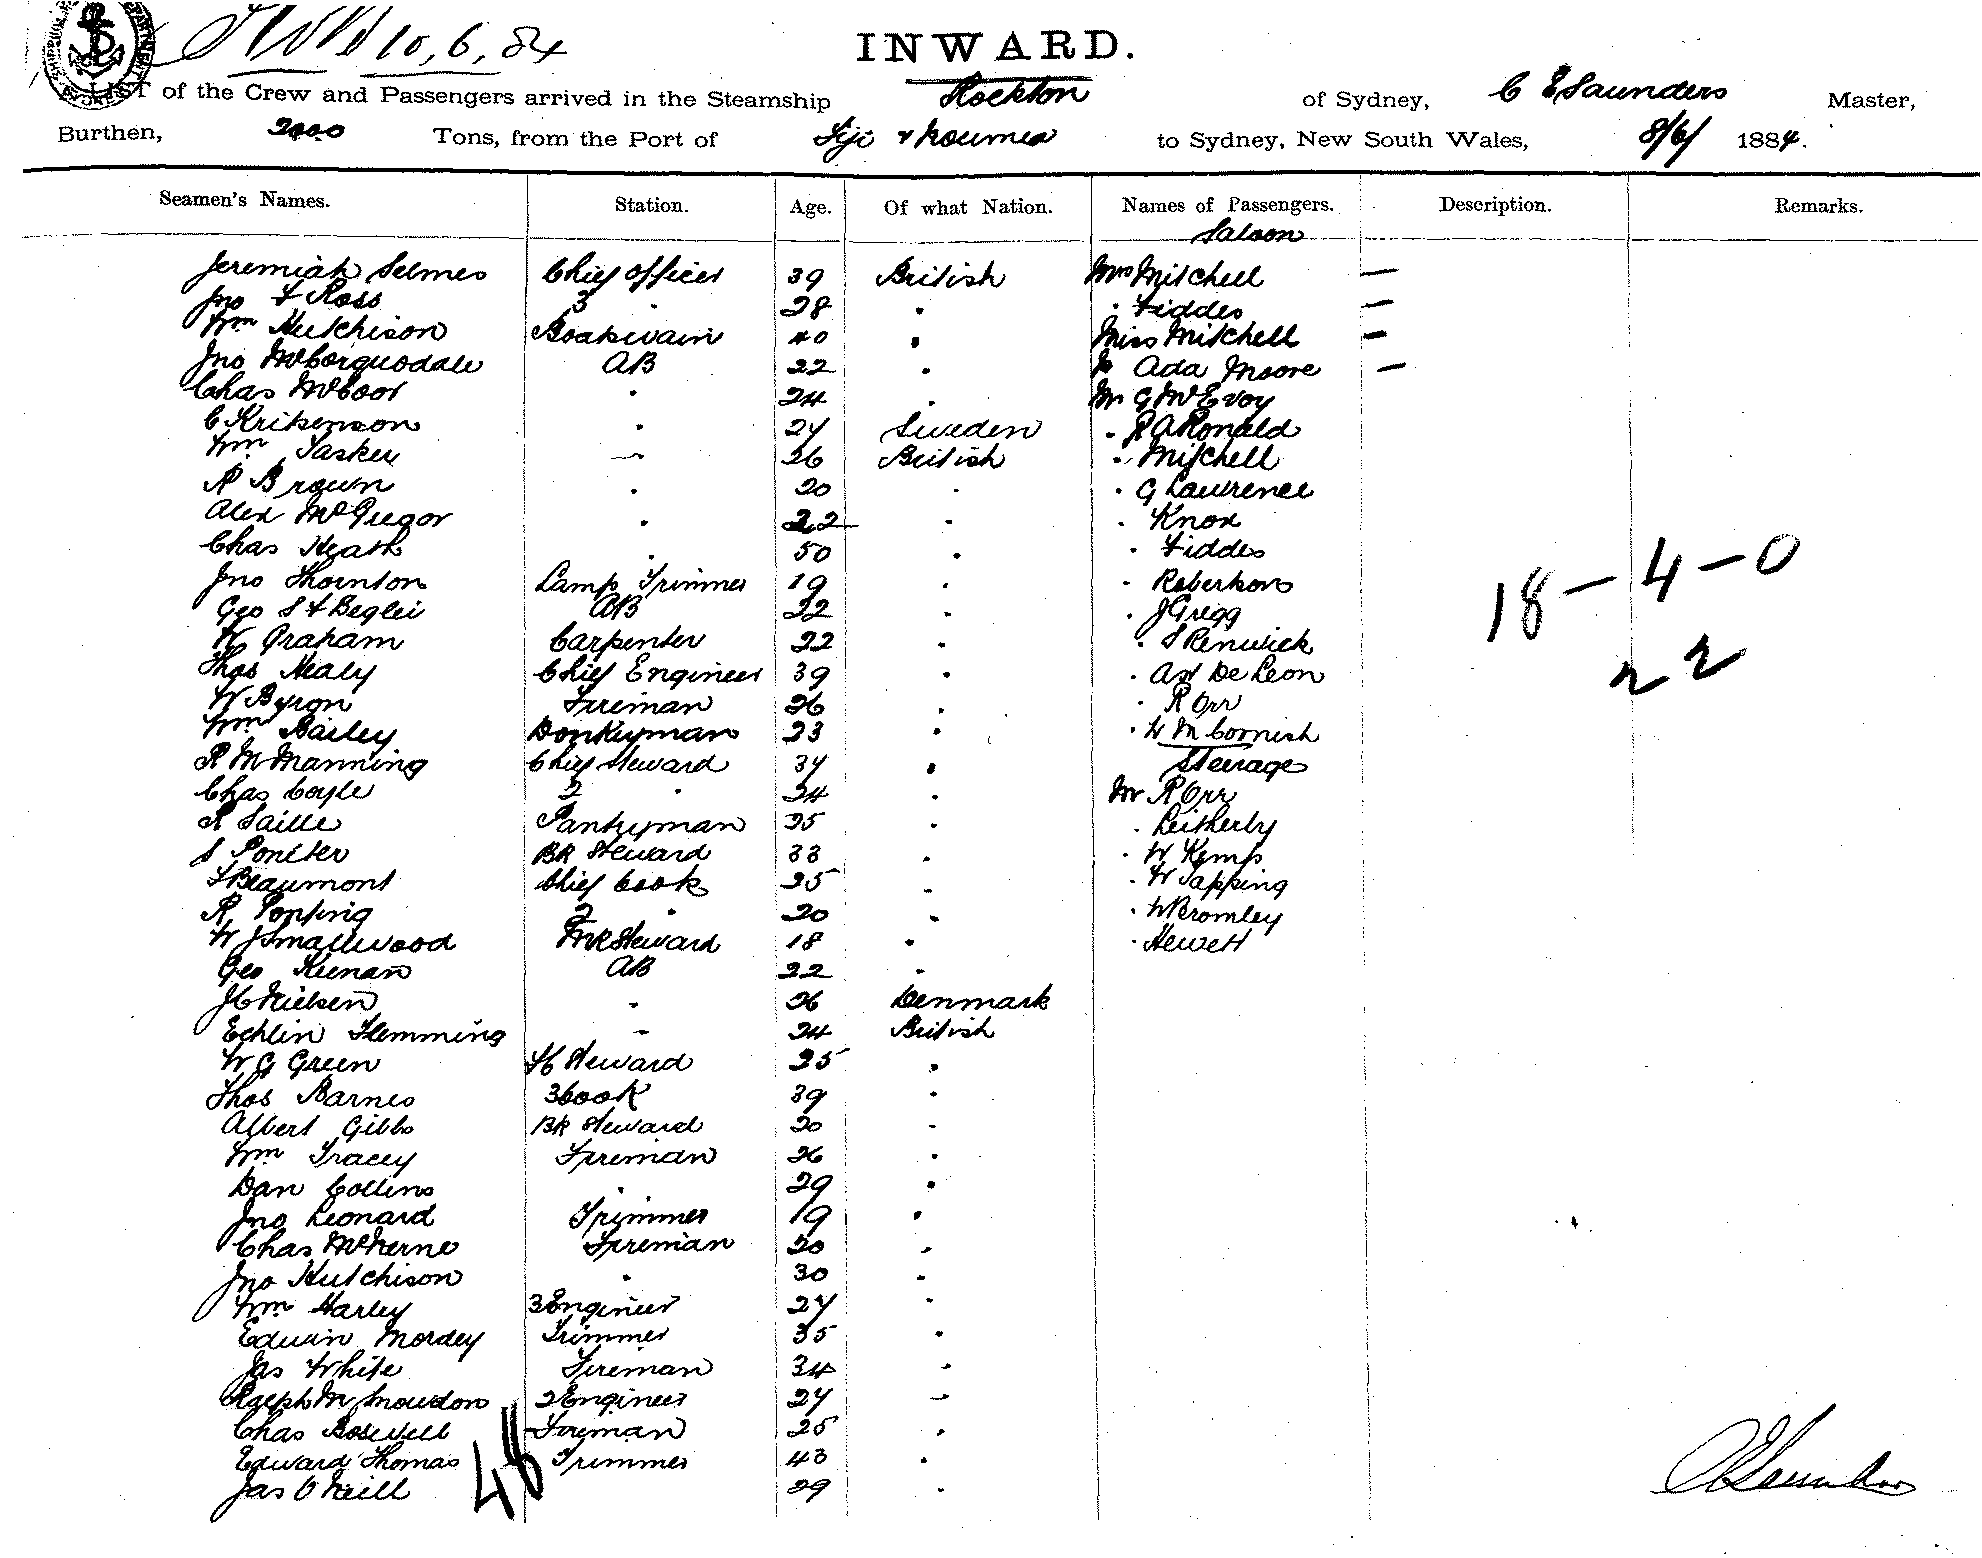 10, 6, 84
INWARD.
LIST of the Crew and Passengers arrived in the Steamship Stockton of Sydney, C E Saunders Master,
Burthen, 2000 Tons, from the Port of Fiji & Noumea to Sydney, New South Wales, 8/6/ 1884.
Seamen's Names. Station. Age. Of what Nation. Names of Passengers. Description. Remarks.
Saloon
Jeremiah Selmes Chief officer 39 British Mrs Mitchell —
Jno F Ross 3 " 28 " " Fiddes —
Wm Hutchison Boatswain 40 " Miss Mitchell —
Jno McCorquodale AB 22 " Ada Moore —
Chas McCool " 24 " Mr G McEvoy
C Kritsenson " 24 Sweden " R A Ronald
Wm Tasker " 26 British " Mitchell
R Brown " 20 " " G Lawrence
Alex McGregor " 22 " " Knox
Chas Heath " 50 " " Fiddes
Jno Thornton Lamp Trimmer 19 " " Robertson
Geo S F Beglei AB 22 " " J Gregg
W Graham Carpenter 22 " " S Renwick
Thos Nealy Chief Engineer 39 " " De Leon
W Byron Fireman 26 " " R Orr
Wm Bailey Donkeyman 23 " " W M Cornish
R M Manning Chief Steward 34 " Steerage
Chas Coyle 2 " 24 " Mr R Orr
R Saille Pantryman 25 " " Leitherby
S Pointer BR Steward 33 " " W Kemp
Beaumont Chief Cook 25 " " W Tapping
R Ponting 2 " 20 " " W Bromley
W J Smallwood MR Steward 18 " " Hewett
Geo Keenan AB 22 "
J C Nielsen " 26 Denmark
Echlin Flemming " 24 British
W G Green Steward 25 "
Thos Barnes 3 Cook 39 "
Albert Gibbs BR Steward 20 "
Wm Tracey Fireman 26 "
Dan Collins " 29 "
Jno Leonard Trimmer 19 "
Chas McKerne Fireman 20 "
Jno Hutchison " 30 "
Wm Harley 3 Engineer 24 "
Edwin Mordey Trimmer 35 "
Jas White Fireman 34 "
Ralph M Snowdon 2 Engineer 24 "
Chas Boswell Fireman 25 "
Edward Thomas Trimmer 43 "
Jas O'Neill 29 "
18 — 4 — 0
22
48
C E Saunders